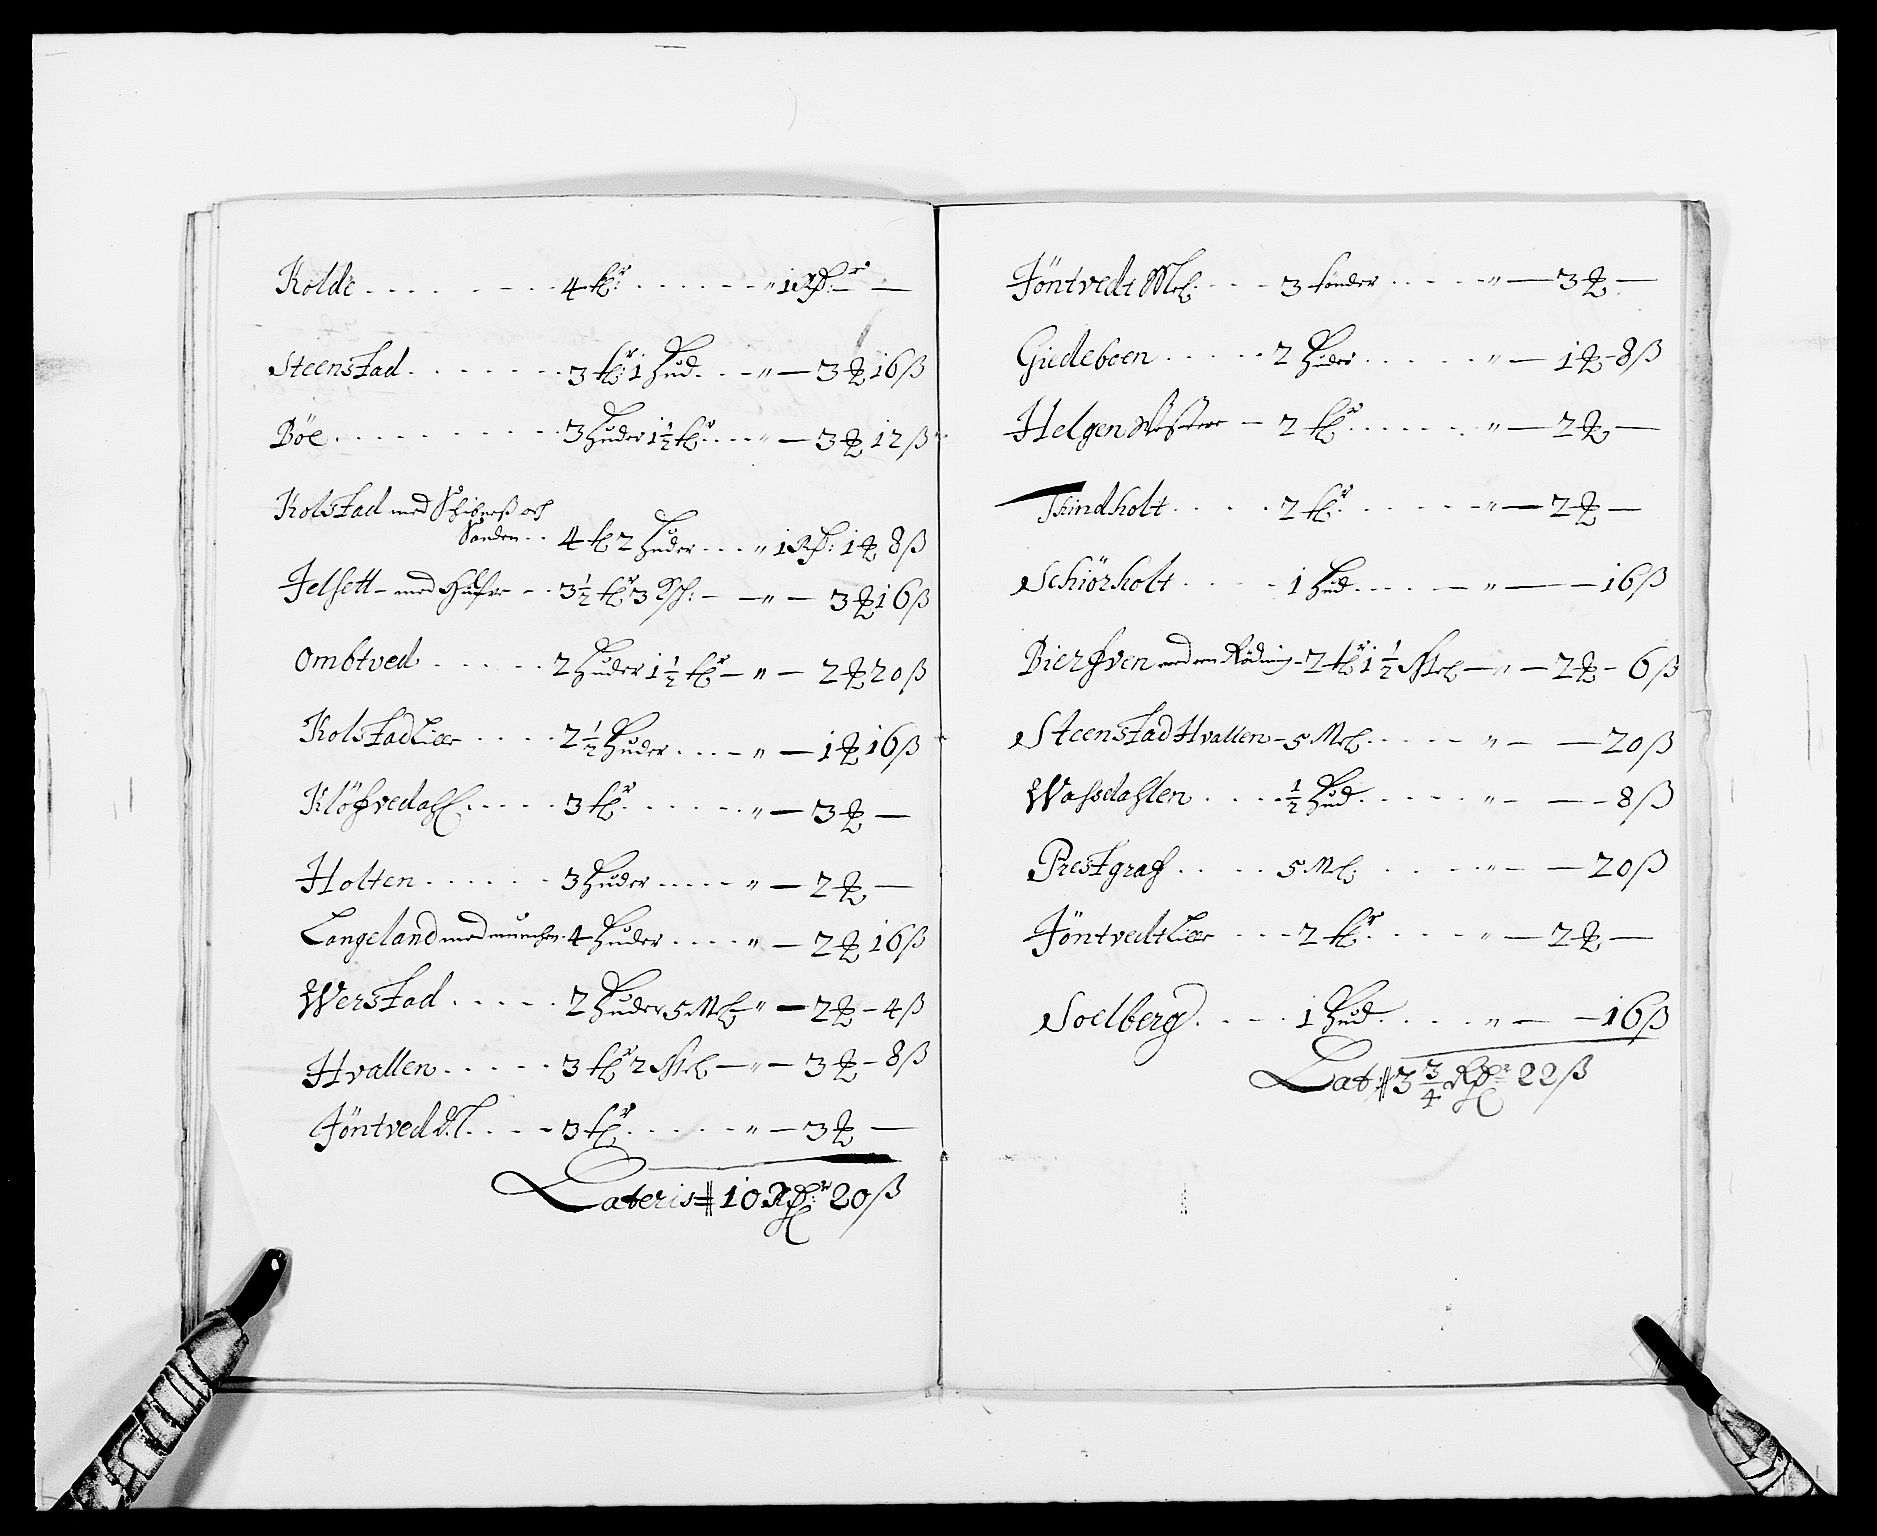 Kolde . . . . . . . 4 tlr: . . . . . . " 1 Rdr: —
Steenstad . . . . . . . 3 tlr: 1 Hud . . . " — 3 ort 16 ß
Böe . . . . . . . . . 3 Huder 1½ tlr . . . " — 3 ort 12 ß
Kolstad med och
Sanden . . 4 tl 2 Huder . . . " 1 Rd: 1 ort 8 ß
Jelsett — med . . 3½ tlr 3 — — " — 3 ort 16 ß
Ombtved . . . . . 2 Huder 1½ tlr — " — 2 ort 20 ß
Kolstad Lille . . . . 2½ Huder . . . . " — 1 ort 16 ß
Klöfvedahl . . . . . 3 tlr . . . . . . " — 3 ort —
Holten . . . . . . 3 Huder . . . . . " — 2 ort —
Langeland med munchen . 4 Huder . . . . " — 2 ort 16 ß
Werstad . . . . . 2 Huder 5 Mrl " — 2 ort — 4 ß
Hvallen . . . . . 3 tlr 2 Mrl — " — 3 ort — 8 ß
Jöntved . . . . 3 tlr . . . . . . " — 3 ort —
Lateris # 10 Rdr: 20 ß
Jöntvedt Mel: . . . 3 tønder . . . . . " — 3 ort —
Giedeboen . . . . . 2 Huder . . . . . . " — 1 ort — 8 ß
Helgen Westere — 2 tlr . . . . . . " — 2 ort —
Tsindholt . . . . 2 tlr . . . . . . " — 2 ort —
Schiörholt . . . . 1 Hud . . . . — " — — 16 ß
Bierfven med en Rödning — 2 tlr 1½ Mrl — " — 2 ort — 6 ß
Steenstad Hvallen — 5 Mrl . . . . . " — — 20 ß
Wassdahlen . . . . ½ Hud . . . . . " — — 8 ß
Prestgraf . . . . 5 Mrl: . . . . . " — — 20 ß
Jöntvedt Lille . . . 2 tlr . . . . . " — 2 ort —
Soelberg . . . . 1 Hud . . . . " — — 16 ß
Lat # 3¾ Rdr: 22 ß